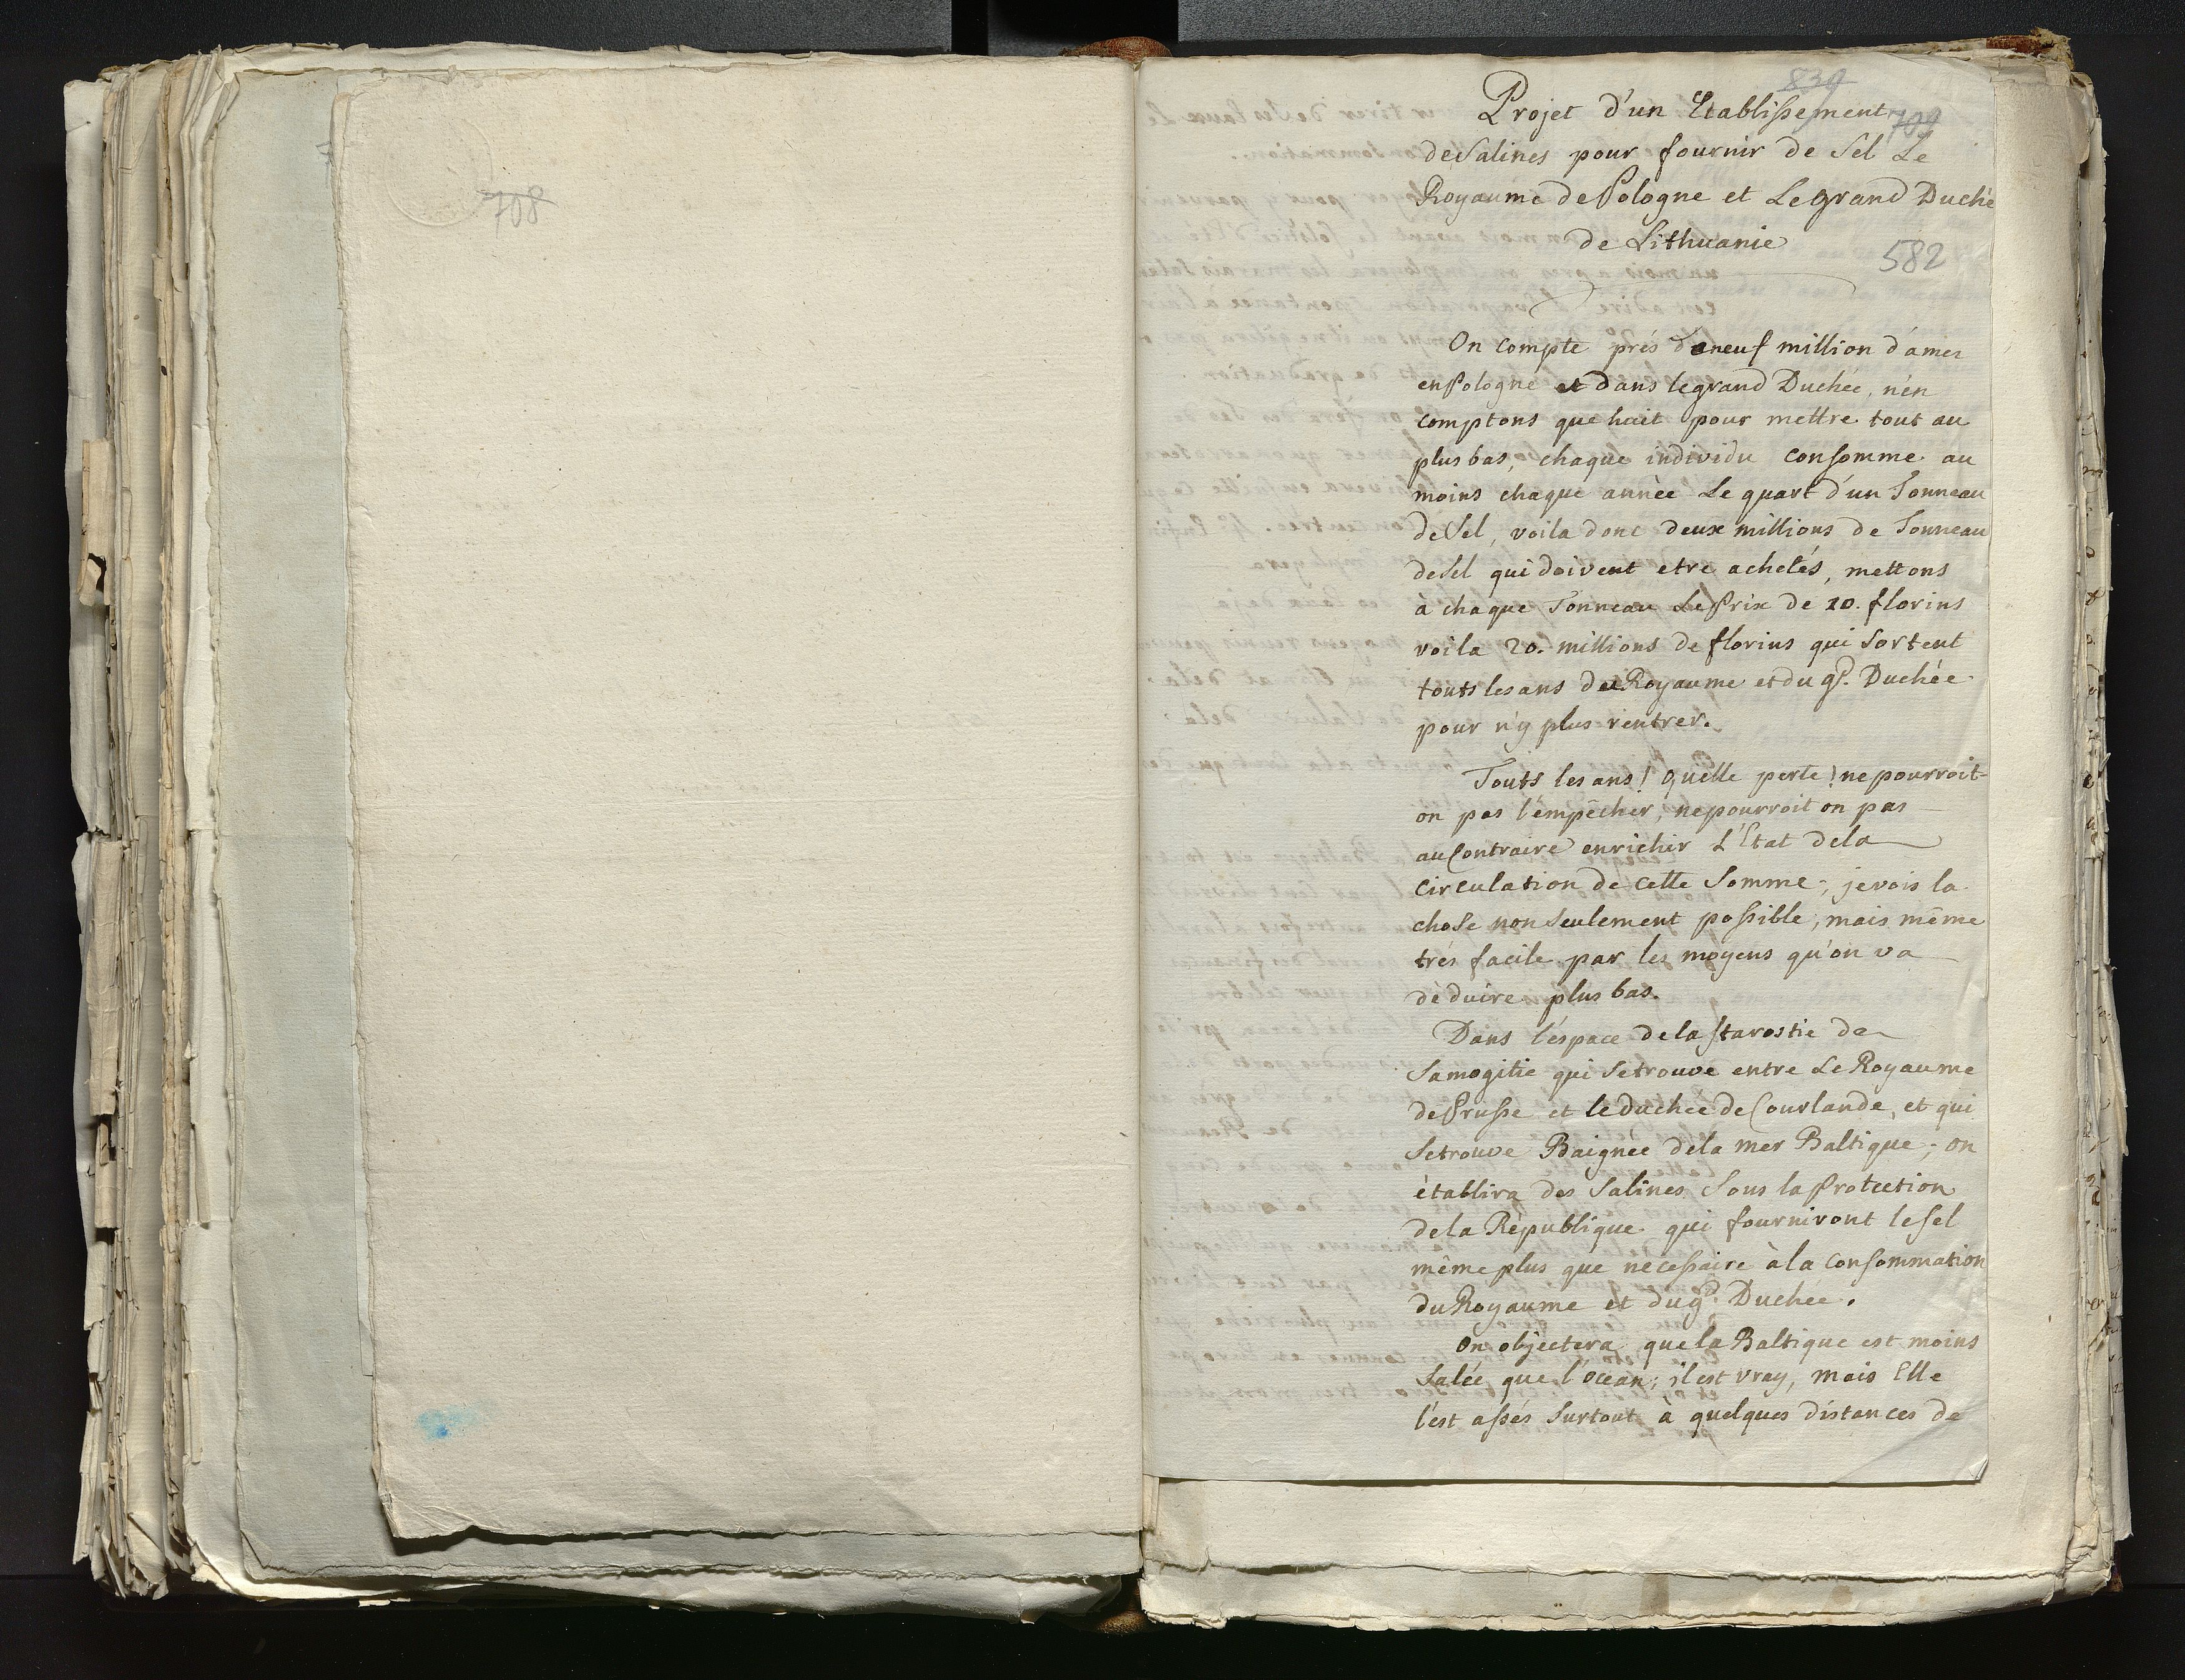 708
839
Projet d'un Etablissement
709
de Salines pour fournir de Sel Le
Royaume de Pologne et Le grand Duché
de Lithuanie
582
On compte prés de neuf million d'ames
en Pologne et dans le grand Duchée, n'en
comptons que huit pour mettre tout au
plus bas, chaque individu consomme au
moins chaque année Le quart d'un Tonneau
de Sel, voila donc deux millions de Tonneau
de Sel qui doivent etre achetés, mettons
à chaque Tonneau Le Prix de 10. florins
voila 20. millions de florins qui sortent
touts les ans du Royaume et du gd. Duchée
pour n'y plus rentrer.
Touts les ans! quelle perte! ne pourroit-
on pas l'empêcher, ne pourroit on pas
au Contraire enrichir L'Etat de la
circulation de cette Somme; je vois la
chose non seulement possible, mais même
trés facile par les moyens qu'on va
déduire plus bas.
Dans l'éspace de la starostie de
Samogitie qui se trouve entre Le Royaume
de Prusse et le duchée de Courlande, et qui
se trouve Baignée de la mer Baltique; on
établira des Salines Sous la Protection
de la République qui fourniront le Sel
même plus que necessaire à la consommation
du Royaume et du gd. Duchée.
On objectera que la Baltique est moins
Salée que l'ocean; il est vray, mais Elle
l'est assés surtout à quelques distances de